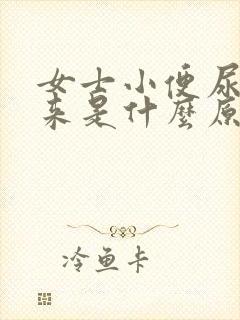 女士小便尿
来是什麼原
冷鱼卡